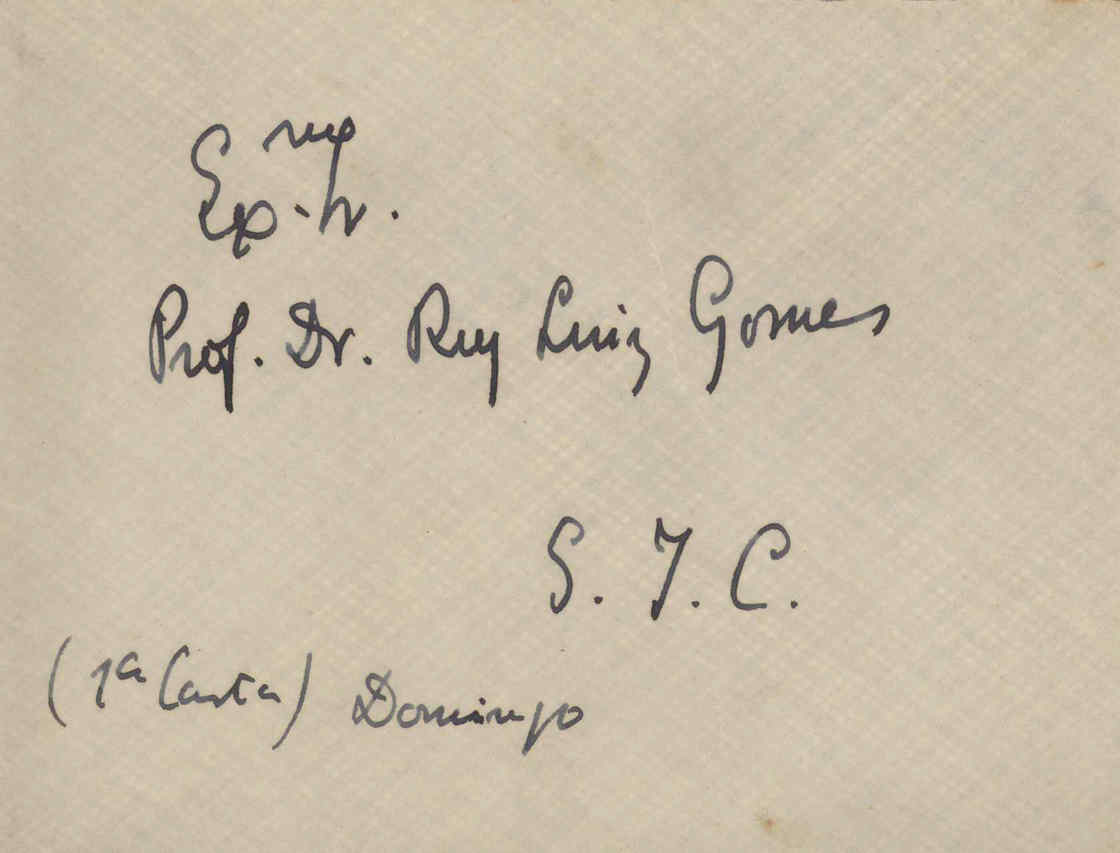 Ex.mo Sr.
Prof. Dr. Ruy Luiz Gomes
S. T. C.
(1ª Carta) Domingo